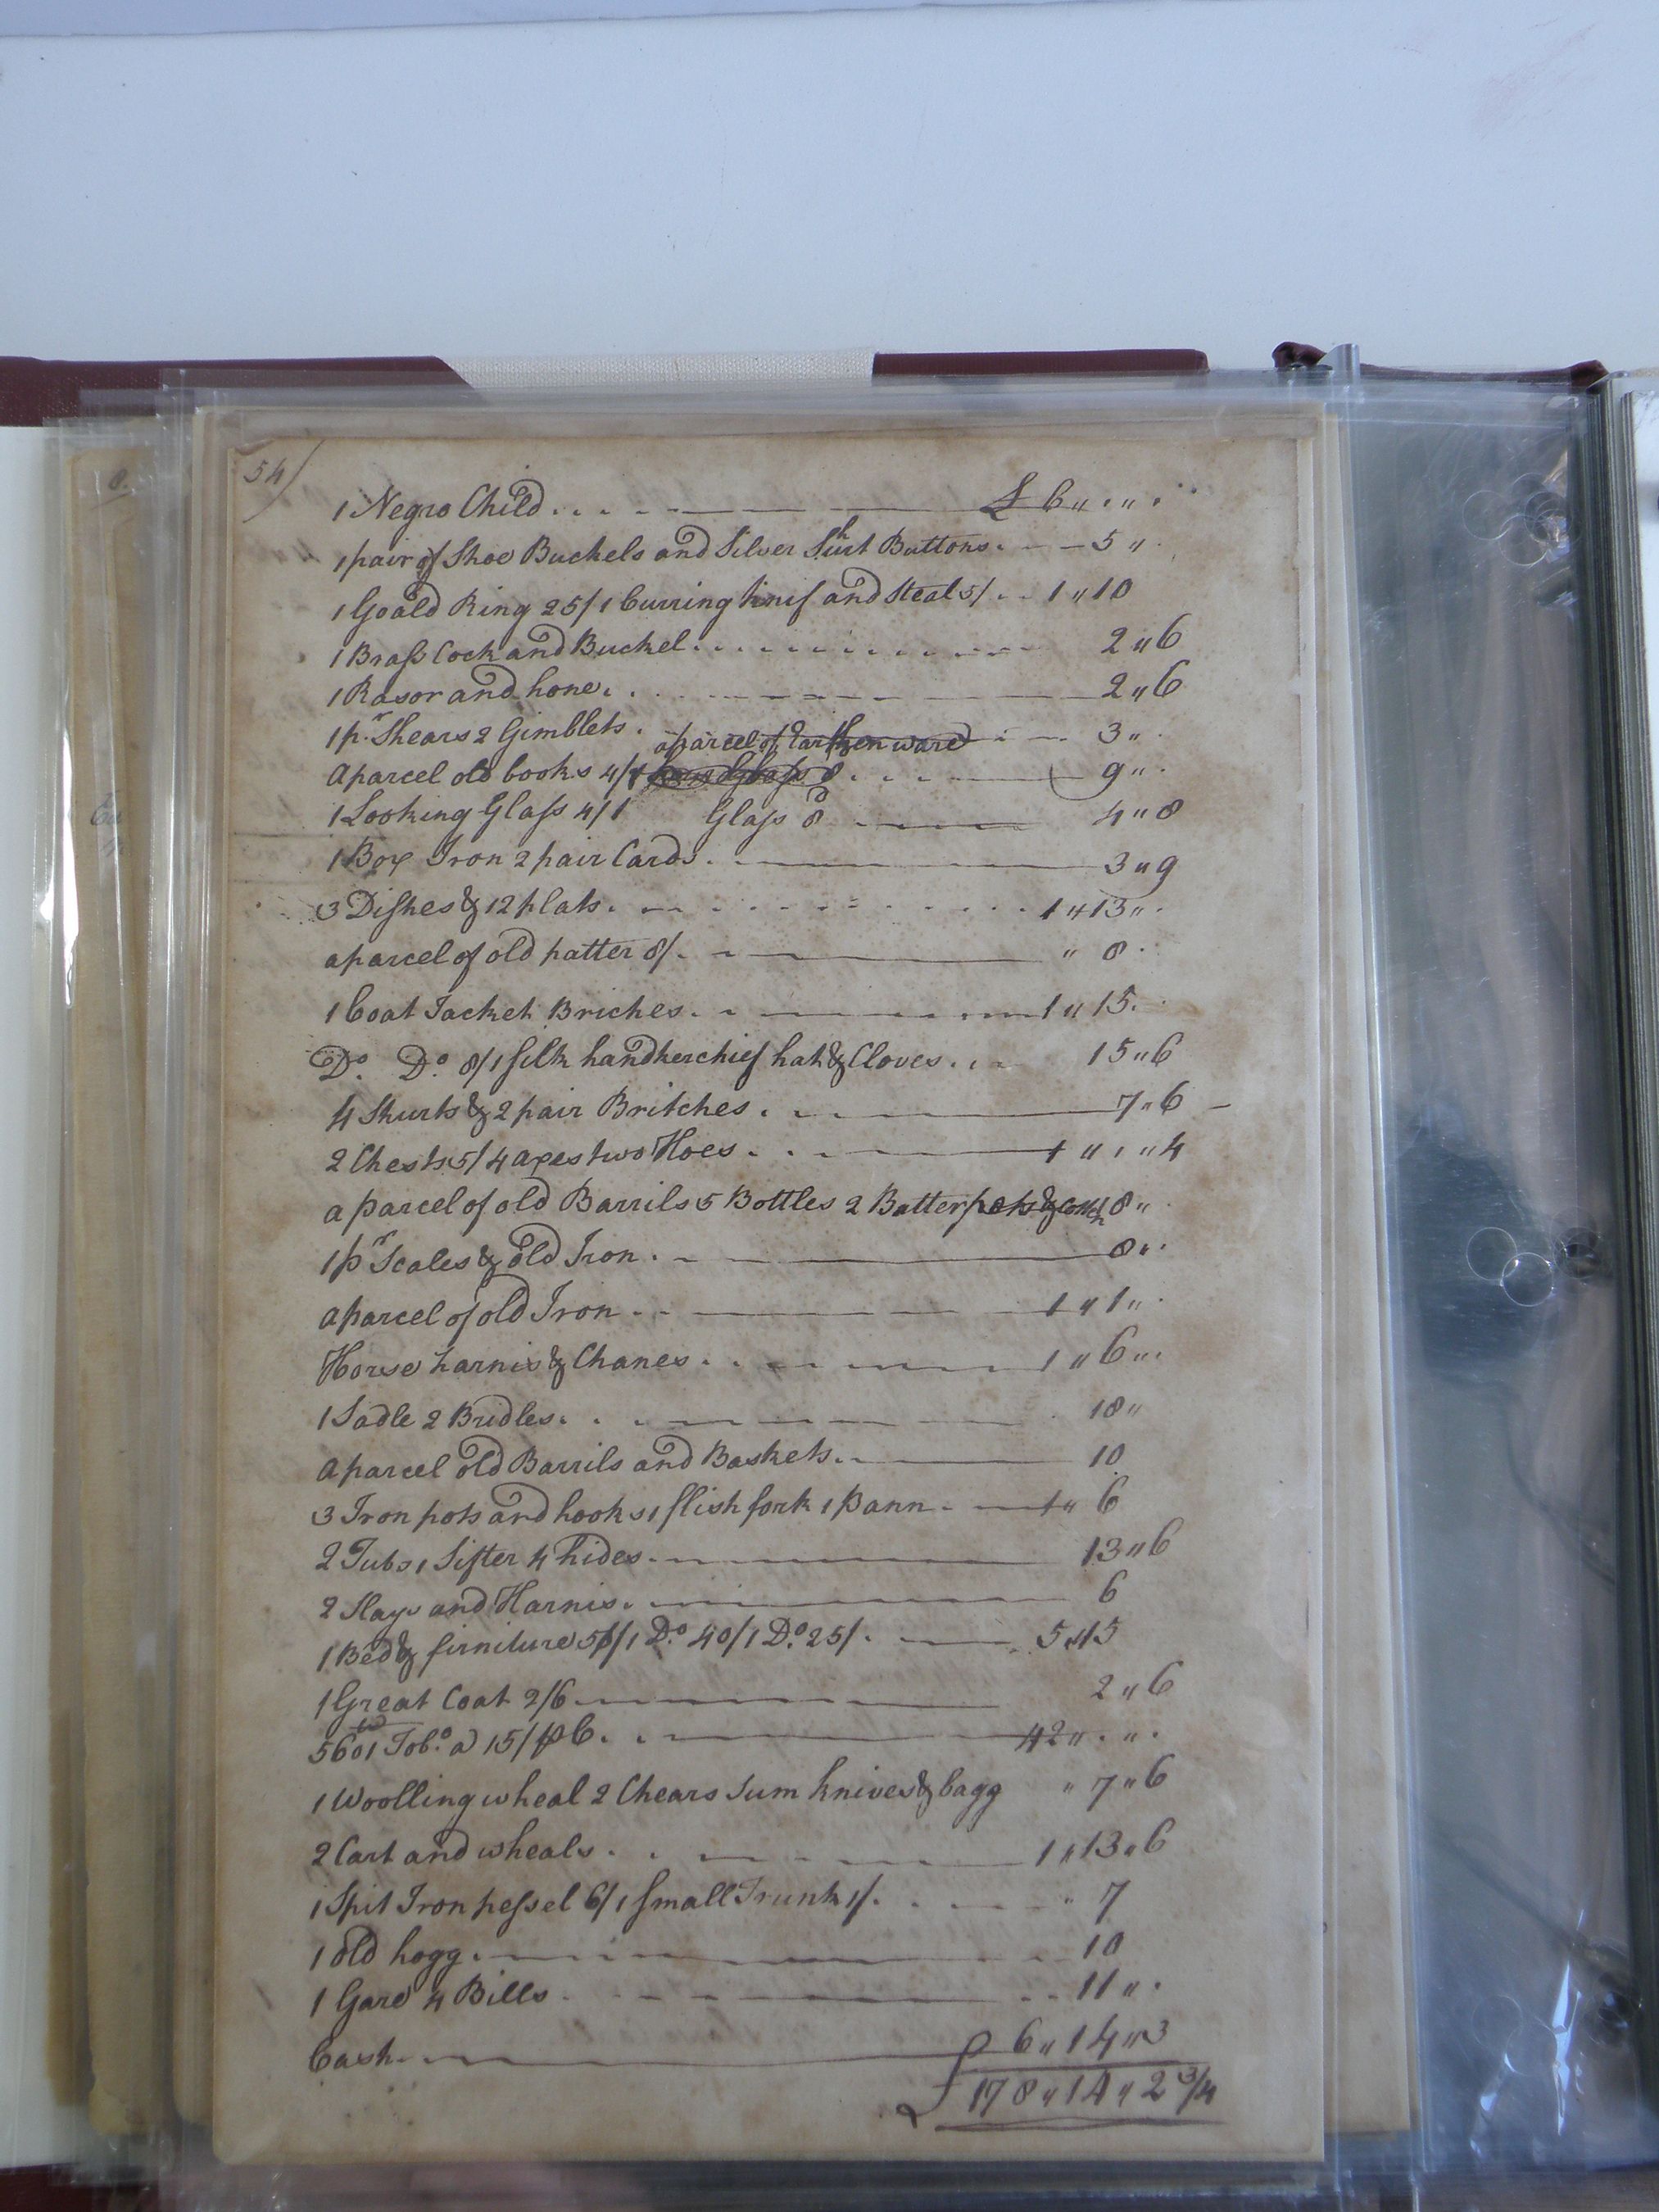 54/
1 Negro Child . . . £ 6 " . " .
1 pair of Shoe Buckels and Silver Shirt Buttons . — 5 " .
1 Goald Ring 25/ 1 Curring knif and Steal 5/ . . 1 " 10
1 Braſs Cock and Buckel . . . 2 " 6
1 Rasor and hone . . 2 " 6
1 pr. Shears 2 Gimblets . 3 " .
a parcel of Earthen ware
a parcel old books 4/ . . . 9 " .
1 Looking Glaſs 4/ 1 Glaſs 8d 4 " 8
1 Box Iron 2 pair Cards . 3 " 9
3 Diſhes & 12 plats . 1 " 13 " .
a parcel of old patter 8/ . " 8 .
1 Coat Jacket Briches . . 1 " 15 . .
Do. Do. 8/ 1 Silk handkerchief hat & Cloves . . 15 " 6
4 Shurts & 2 pair Britches . 7 " 6 —
2 Chests 5/ 4 axes two Hoes . . 1 " . " 4
a parcel of old Barrils 5 Bottles 2 Batter pots & 8 " .
1 pr Scales & old Iron . 8 " .
a parcel of old Iron . . 1 " 1 " .
Horse harnis & Chanes . . 1 " 6 " .
1 Sadle 2 Bridles . . 18 "
a parcel old Barrils and Baskets . . 10
3 Iron pots and hooks 1 flish fork 1 pann . 1 " 6
2 Tubs 1 Sifter 4 hides . 13 " 6
2 Slays and Harnis . 6
1 Bed & firniture 50/ 1 Do. 40/ 1 Do. 25/ . 5 " 15
1 Great Coat 2/6 2 " 6
5601 Tobo. a 15/ p C . . 42 " . " .
1 Woolling wheal 2 Chears Sum knives & bagg " 7 " 6
2 Cart and wheals . . 1 " 13 " 6
1 Spit Iron peſsel 6/ 1 Small Trunk 1/ . . " 7
1 old hogg . 10
1 Gare 4 Bills . 11 " .
Cash . 6 " 14 " 3
£ 178 " 14 " 2 3/4